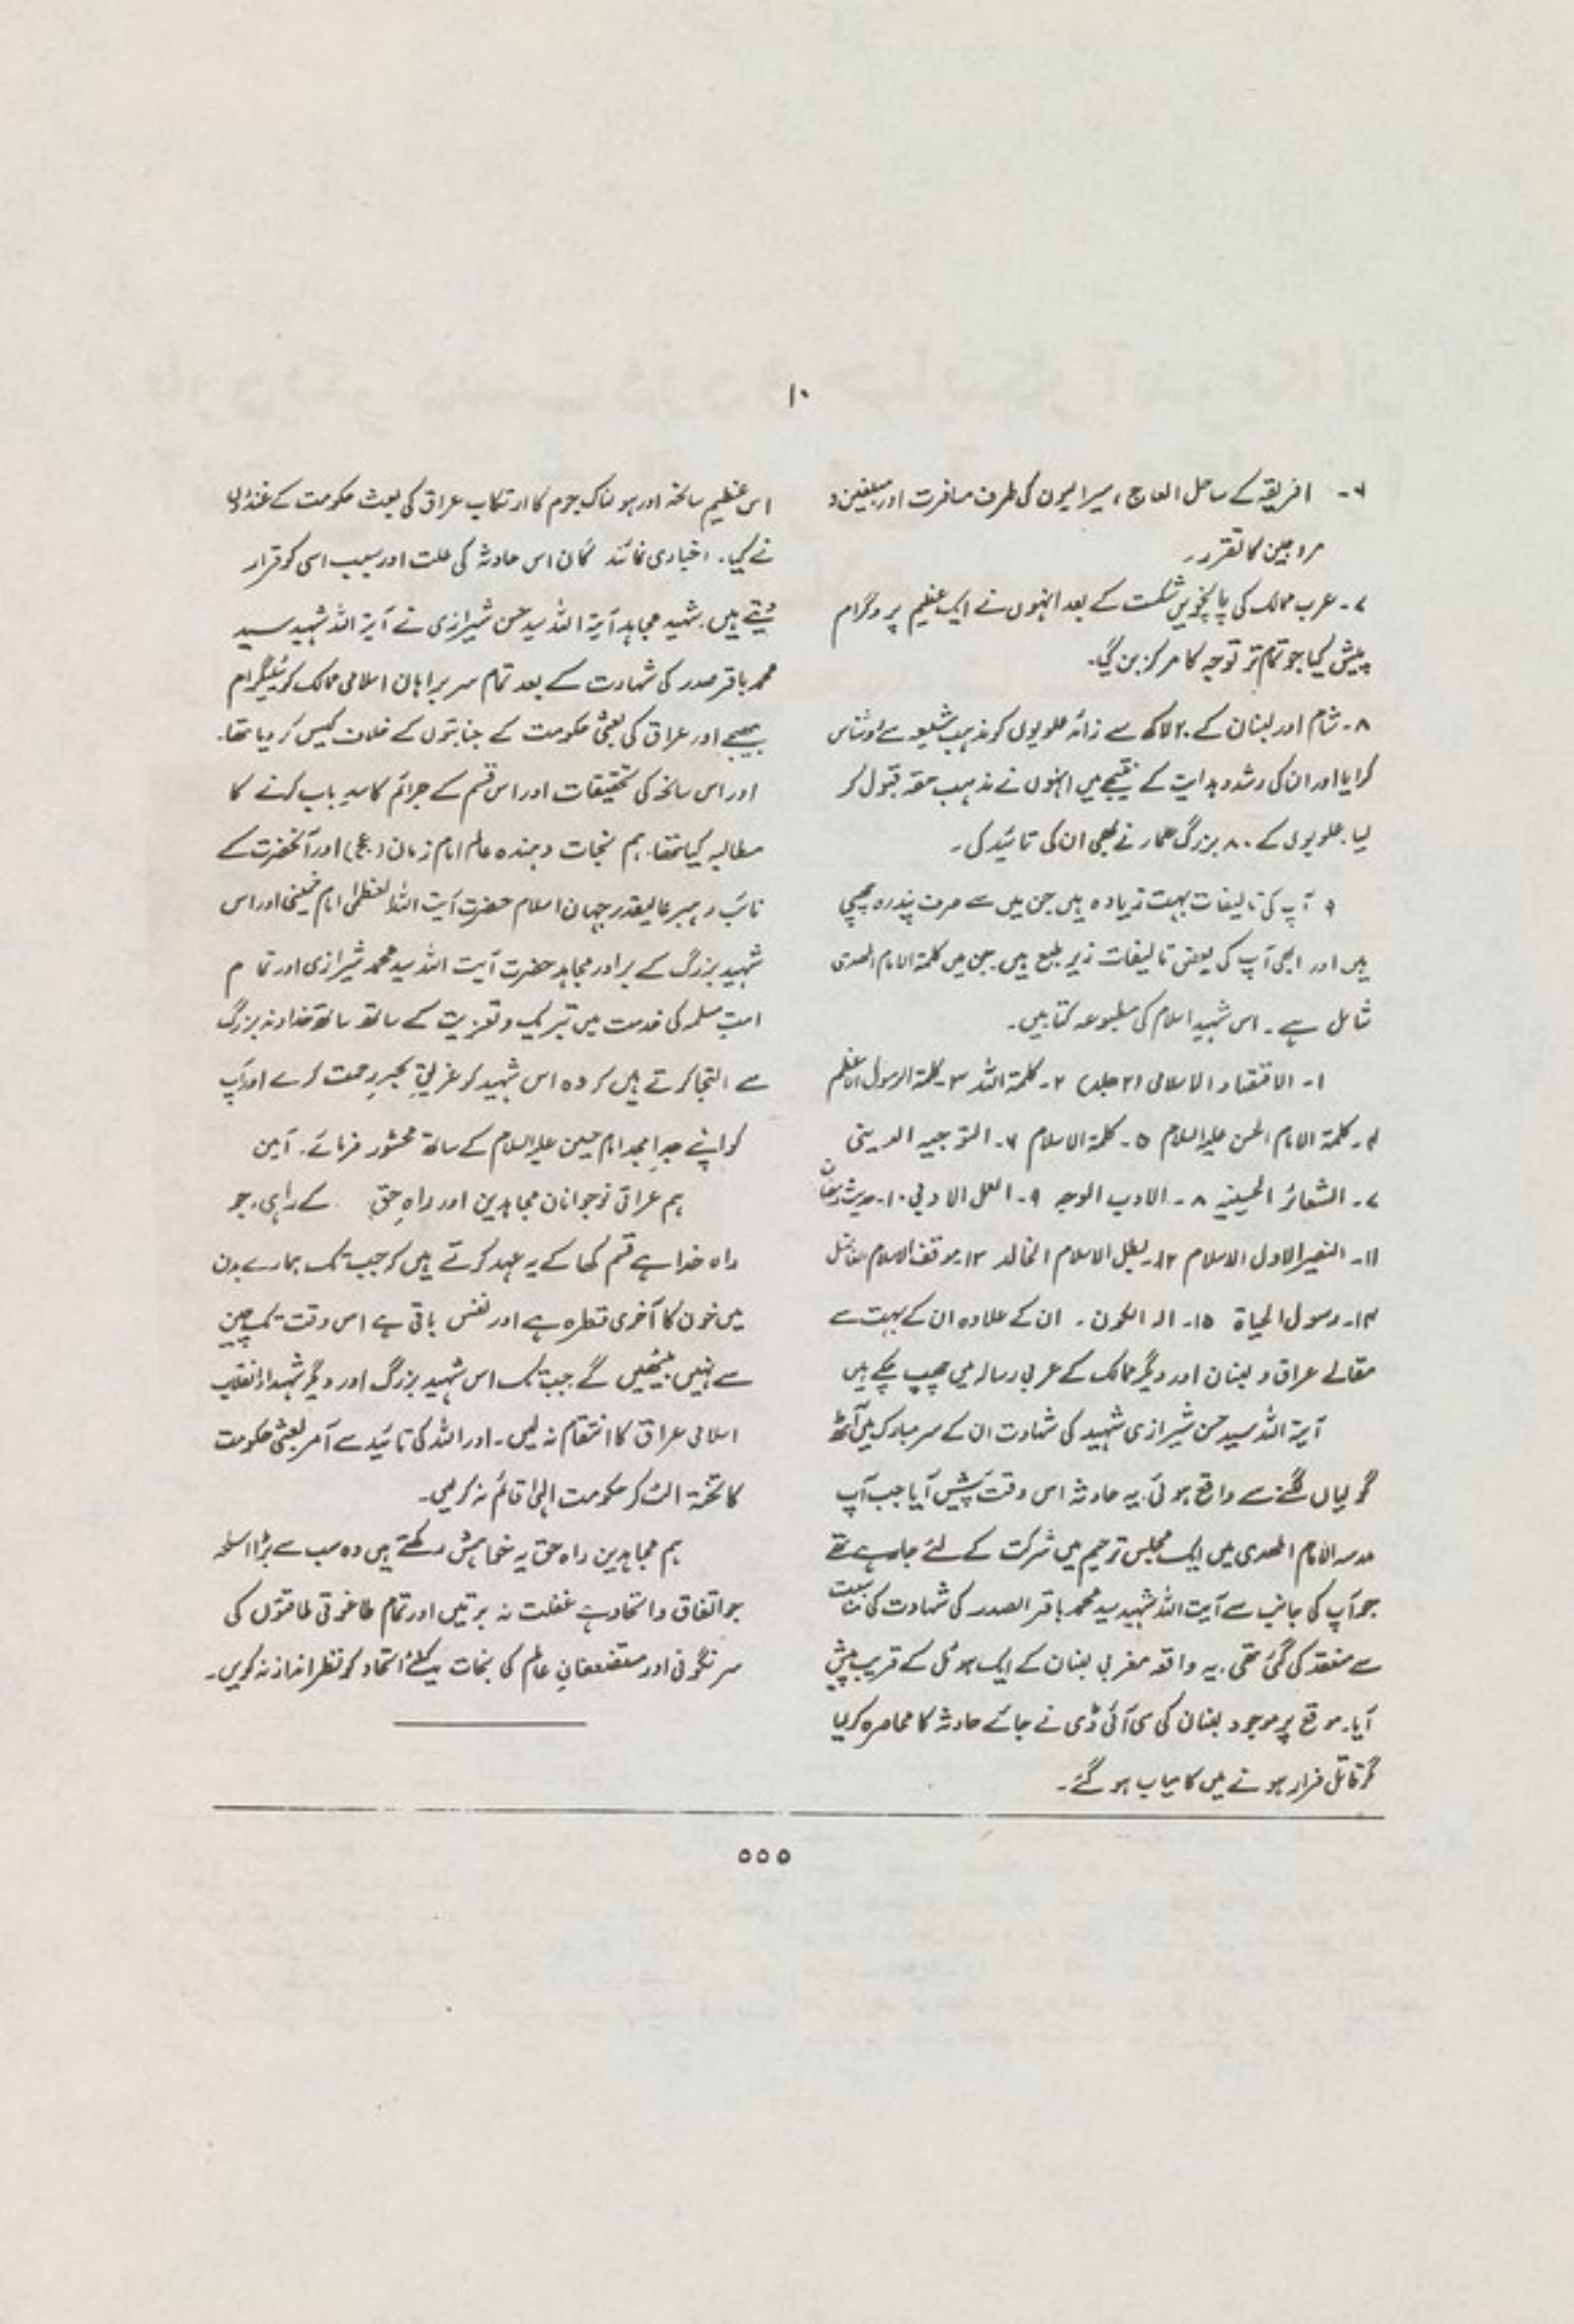 ۱۰
۶۔ افریقہ کے ساحل العاج، سیرالیون کی طرف مسافرت اور مبلغین و
مروجین کا تقرر۔
۷۔ عرب ممالک کی پانچویں شکست کے بعد انہوں نے ایک عظیم پروگرام
پیش کیا جو تمام تر توجہ کا مرکز بن گیا۔
۸۔ شام اور لبنان کے ۲۰ لاکھ سے زائد علویوں کو مذہب شیعہ سے روشناس
کرایا اور ان کی رشد و ہدایت کے نتیجے میں انہوں نے مذہب حقہ قبول کر
لیا۔ علویوں کے ۸۰ بزرگ علمار نے بھی ان کی تائید کی۔
۹ آپ کی تالیفات بہت زیادہ ہیں جن میں سے صرف پندرہ چھپی
ہیں اور ابھی آپ کی بعض تالیفات زیر طبع ہیں جن میں کلمۃ الامام المھدی
شامل ہے۔ اس شہید اسلام کی مطبوعہ کتابیں۔
۱۔ الاقتصاد الاسلامی (۲ جلد) ۲۔ کلمۃ اللہ ۳۔ کلمۃ الرسول الاعظم
۴۔ کلمۃ الامام الحسن علیہ السلام ۵۔ کلمۃ الاسلام ۶۔ التوجیہ الدینی
۷۔ الشعائر الحسینیہ ۸۔ الادب الوجہ ۹۔ العمل الادبی ۱۰۔ حدیث رمضان
۱۱۔ النصیر الاول الاسلام ۱۲۔ بطل الاسلام الخالد ۱۳۔ موقف الاسلام
۱۴۔ رسول الحیاۃ ۱۵۔ الہ الکون۔ ان کے علاوہ ان کے بہت سے
مقالے عراق و لبنان اور دیگر ممالک کے عربی رسالہ میں چھپ چکے ہیں
آیۃ اللہ سید حسن شیرازی شہید کی شہادت ان کے سر مبارک میں آٹھ
گولیاں لگنے سے واقع ہوئی۔ یہ حادثہ اس وقت پیش آیا جب آپ
مدرسہ الامام المھدی میں ایک مجلس ترحیم میں شرکت کے لئے جا رہے تھے
جو آپ کی جانب سے آیت اللہ شہید سید محمد باقر الصدر کی شہادت کی مناسبت
سے منعقد کی گئی تھی۔ یہ واقعہ مغربی لبنان کے ایک ہوٹل کے قریب پیش
آیا۔ موقع پر موجود لبنان کی سی آئی ڈی نے جائے حادثہ کا محاصرہ کر لیا
مگر قاتل فرار ہونے میں کامیاب ہو گئے۔
اس عظیم سانحہ اور ہولناک جرم کا ارتکاب عراق کی بعث حکومت کے غنڈوں
نے کیا۔ اخباری نمائندگان اس حادثہ کی علت اور سبب اسی کو قرار
دیتے ہیں۔ شہید مجاہد آیۃ اللہ سید حسن شیرازی نے آیۃ اللہ شہید سید
محمد باقر صدر کی شہادت کے بعد تمام سربراہان اسلامی ممالک کو ٹیلیگرام
بھیجے اور عراق کی بعثی حکومت کے جنایتوں کے خلاف کیس کر دیا تھا۔
اور اس سانحہ کی تحقیقات اور اس قسم کے جرائم کا سدِ باب کرنے کا
مطالبہ کیا تھا۔ ہم نجات دہندہ عالم امام زمان (عج) اور آنحضرت کے
نائب رہبر عالیقدر جہان اسلام حضرت آیت اللہ العظمی امام خمینی اور اس
شہید بزرگ کے برادر مجاہد حضرت آیت اللہ سید محمد شیرازی اور تمام
امت مسلمہ کی خدمت میں تبریک و تعزیت کے ساتھ ساتھ خداوند بزرگ
سے التجا کرتے ہیں کہ وہ اس شہید کو غریقِ بحرِ رحمت کرے اور آپ
کو اپنے جدِ امجد امام حسین علیہ السلام کے ساتھ محشور فرمائے۔ آمین
ہم عراق نوجوانان مجاہدین اور راہِ حق کے راہی، جو
راہ خدا ہے قسم کھا کے یہ عہد کرتے ہیں کہ جب تک ہمارے بدن
میں خون کا آخری قطرہ ہے اور نفس باقی ہے اس وقت تک چین
سے نہیں بیٹھیں گے جب تک اس شہید بزرگ اور دیگر شہداء انقلاب
اسلامی عراق کا انتقام نہ لیں۔ اور اللہ کی تائید سے آمر بعثی حکومت
کا تختہ الٹ کر حکومت الہیٰ قائم نہ کر لیں۔
ہم مجاہدین راہ حق یہ خواہش رکھتے ہیں وہ سب سے بڑا اسلحہ
جو اتفاق و اتحاد ہے غفلت نہ برتیں اور تمام طاغوتی طاقتوں کی
سرنگونی اور مستضعفانِ عالم کی نجات کیلئے اتحاد کو نظر انداز نہ کریں۔
۵۵۵